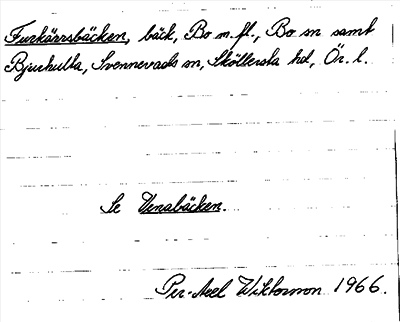 Furkärrsbäcken, bäck, Bo m.fl., Bo sn samt
Bjurhulta, Svennevads sn, Sköllersta hd, Ör. l.
Se Venabäcken.
Per-Axel Wiktorsson 1966.